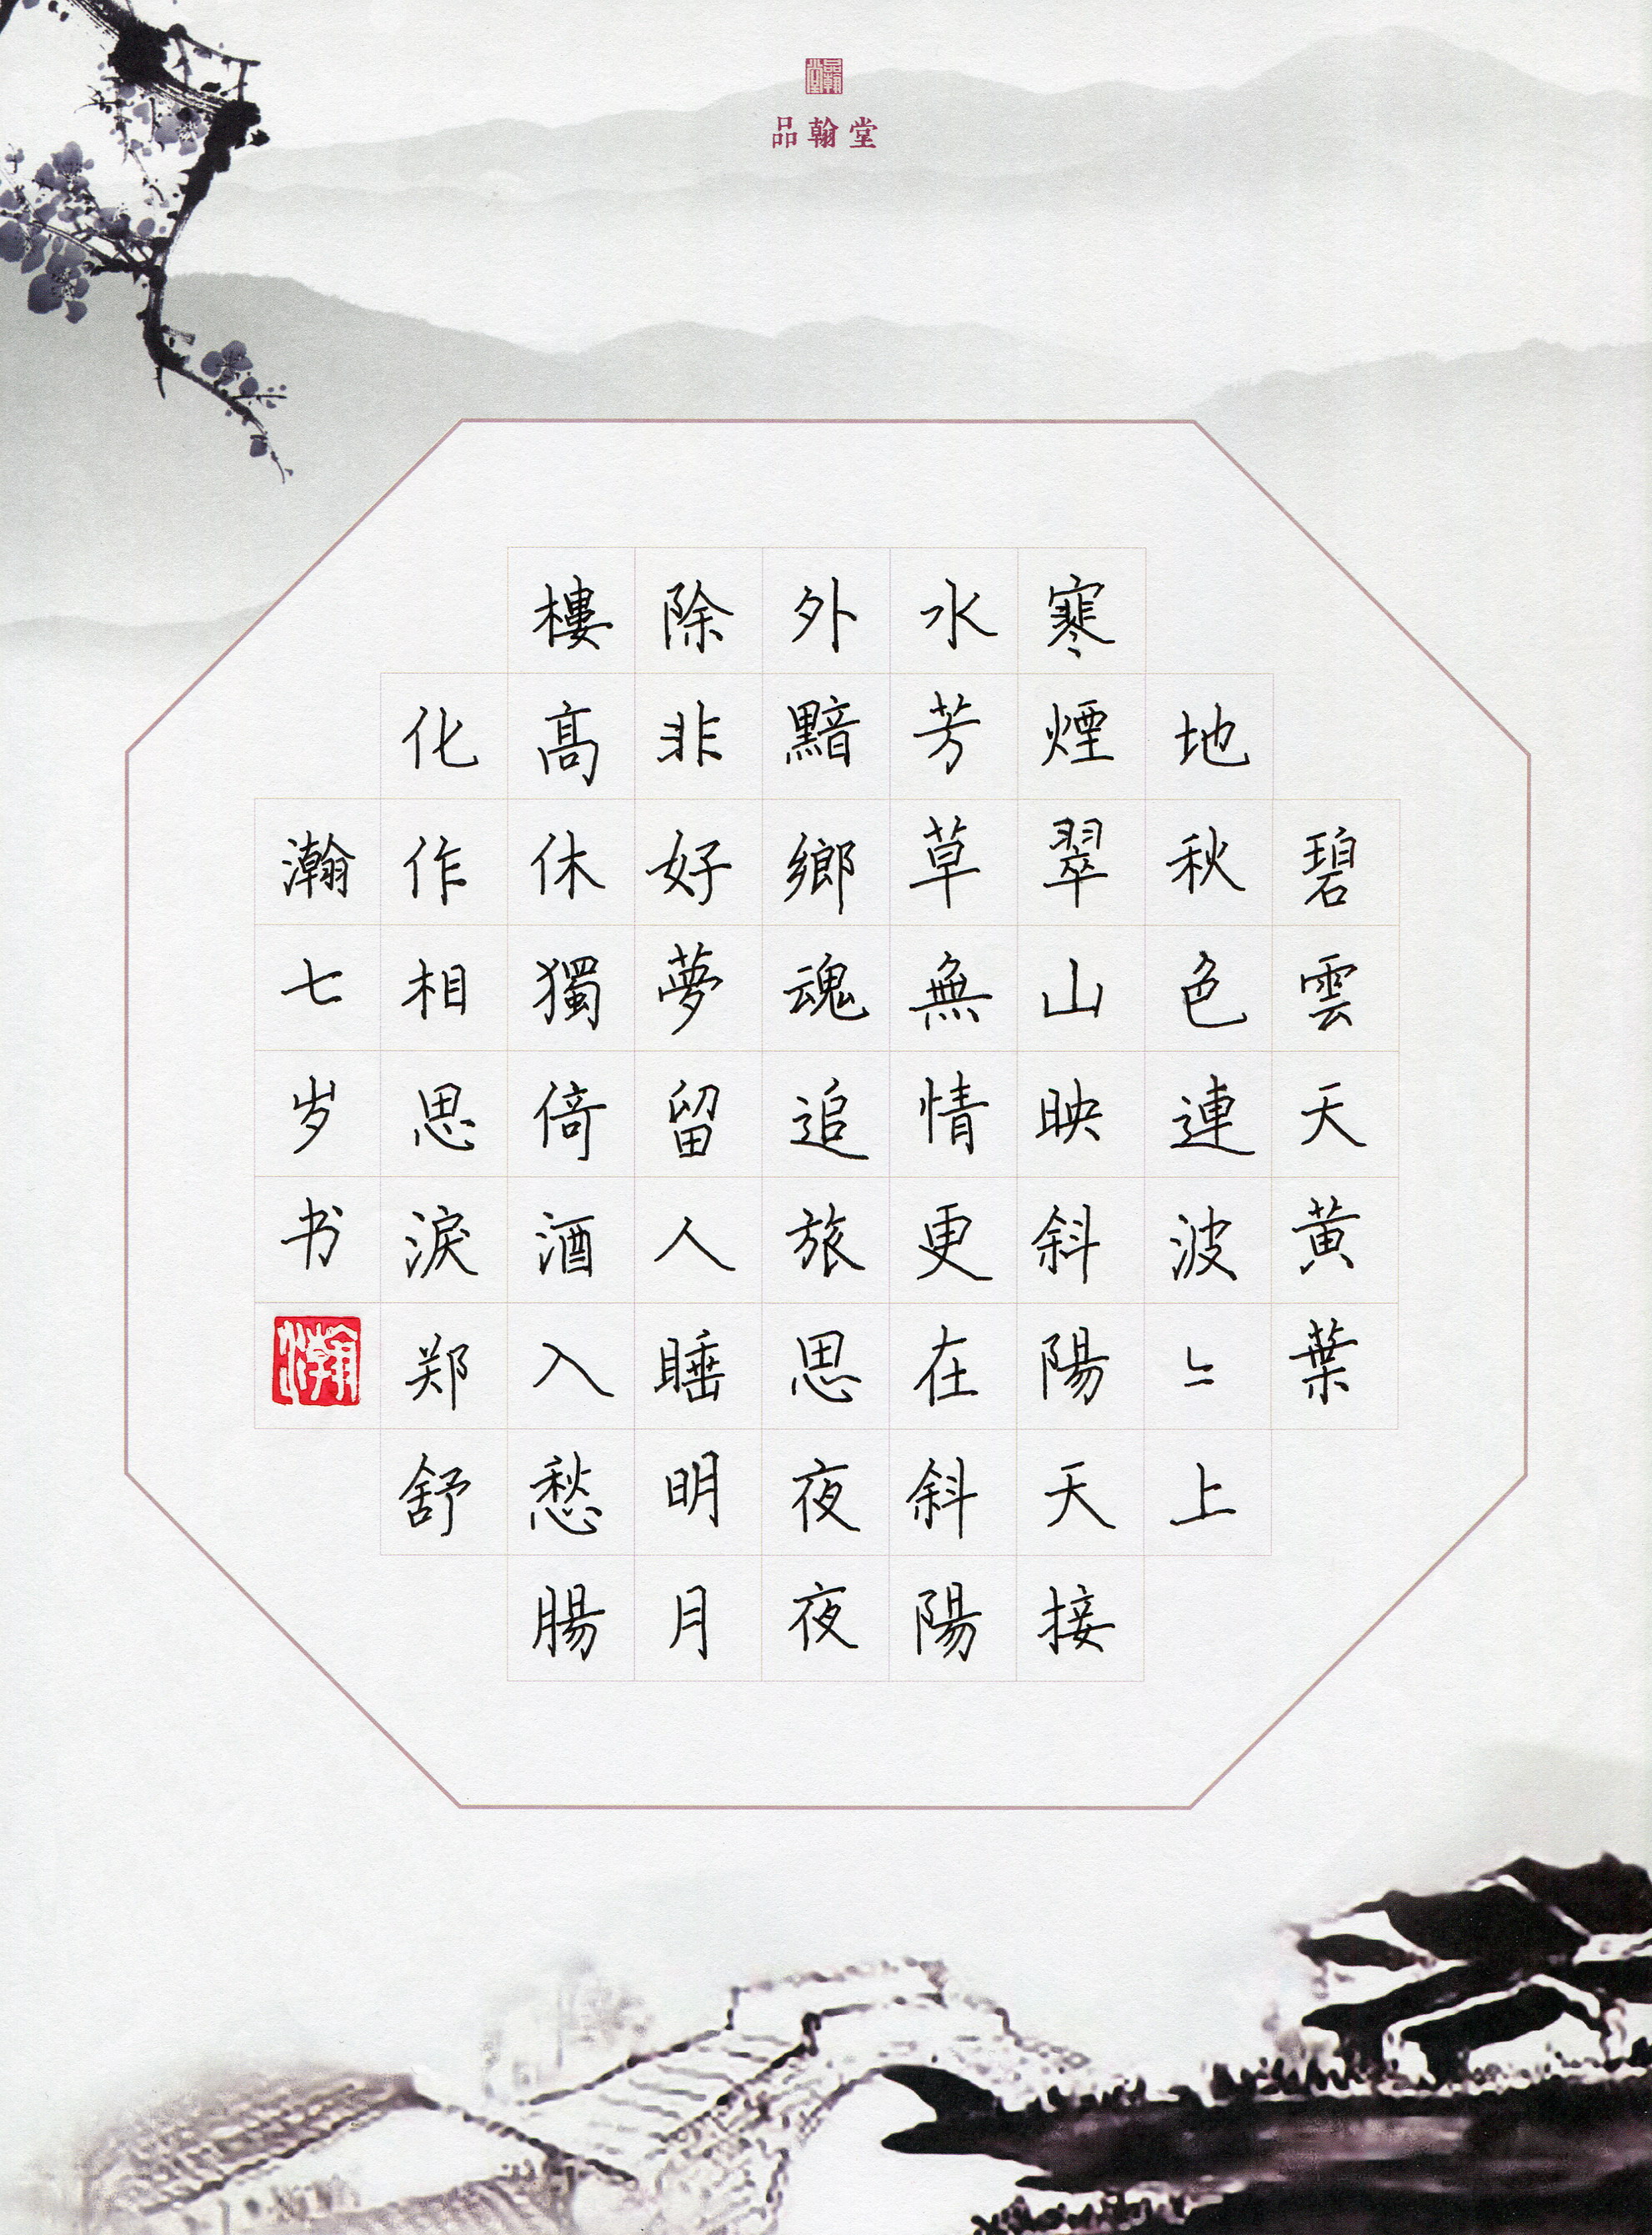 品翰堂
品翰堂
碧雲天黄葉
地秋色連波〻上
寒煙翠山映斜陽天接
水芳草無情更在斜陽
外黯鄉魂追旅思夜夜
除非好夢留人睡明月
樓高休獨倚酒入愁腸
化作相思淚郑舒
瀚七岁书
瀚